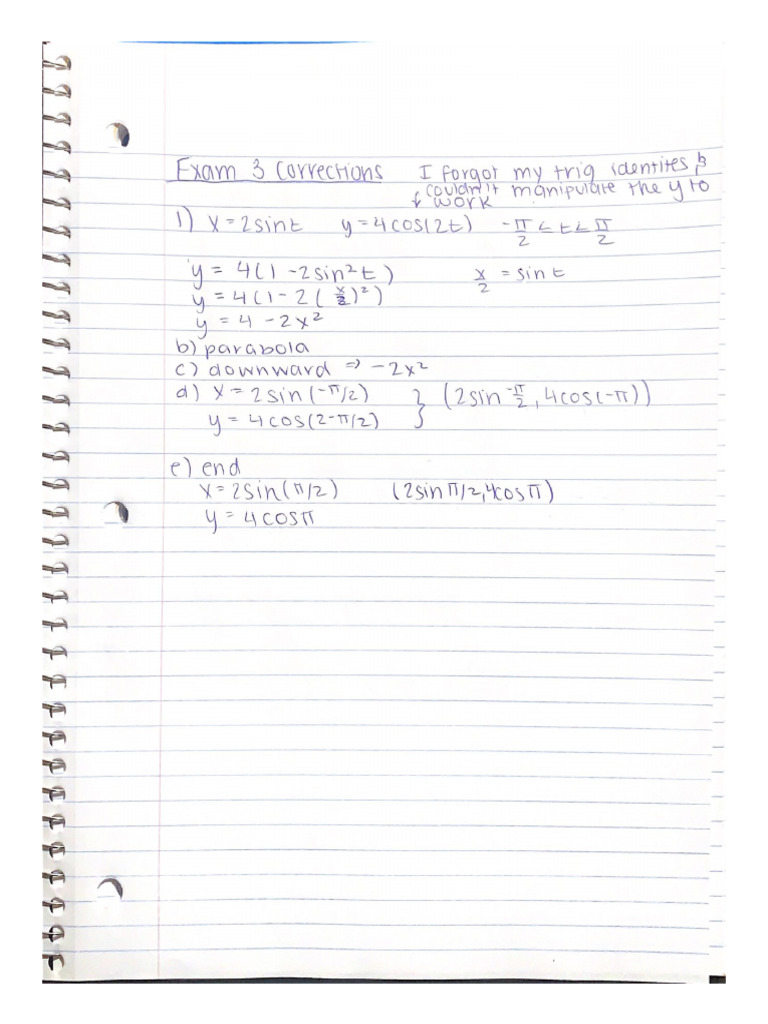 Exam 3 Corrections I forgot my trig identites &
couldn't manipulate the y to
↓ work
1) x = 2sint y = 4cos(2t) -π/2 < t < π/2
y = 4(1 - 2sin²t) x/2 = sint
y = 4(1 - 2(x/2)²)
y = 4 - 2x²
b) parabola
c) downward => -2x²
d) x = 2sin(-π/2) } (2sin -π/2, 4cos(-π))
y = 4cos(2-π/2)
e) end
x = 2sin(π/2) (2sin π/2, 4cosπ)
y = 4cosπ